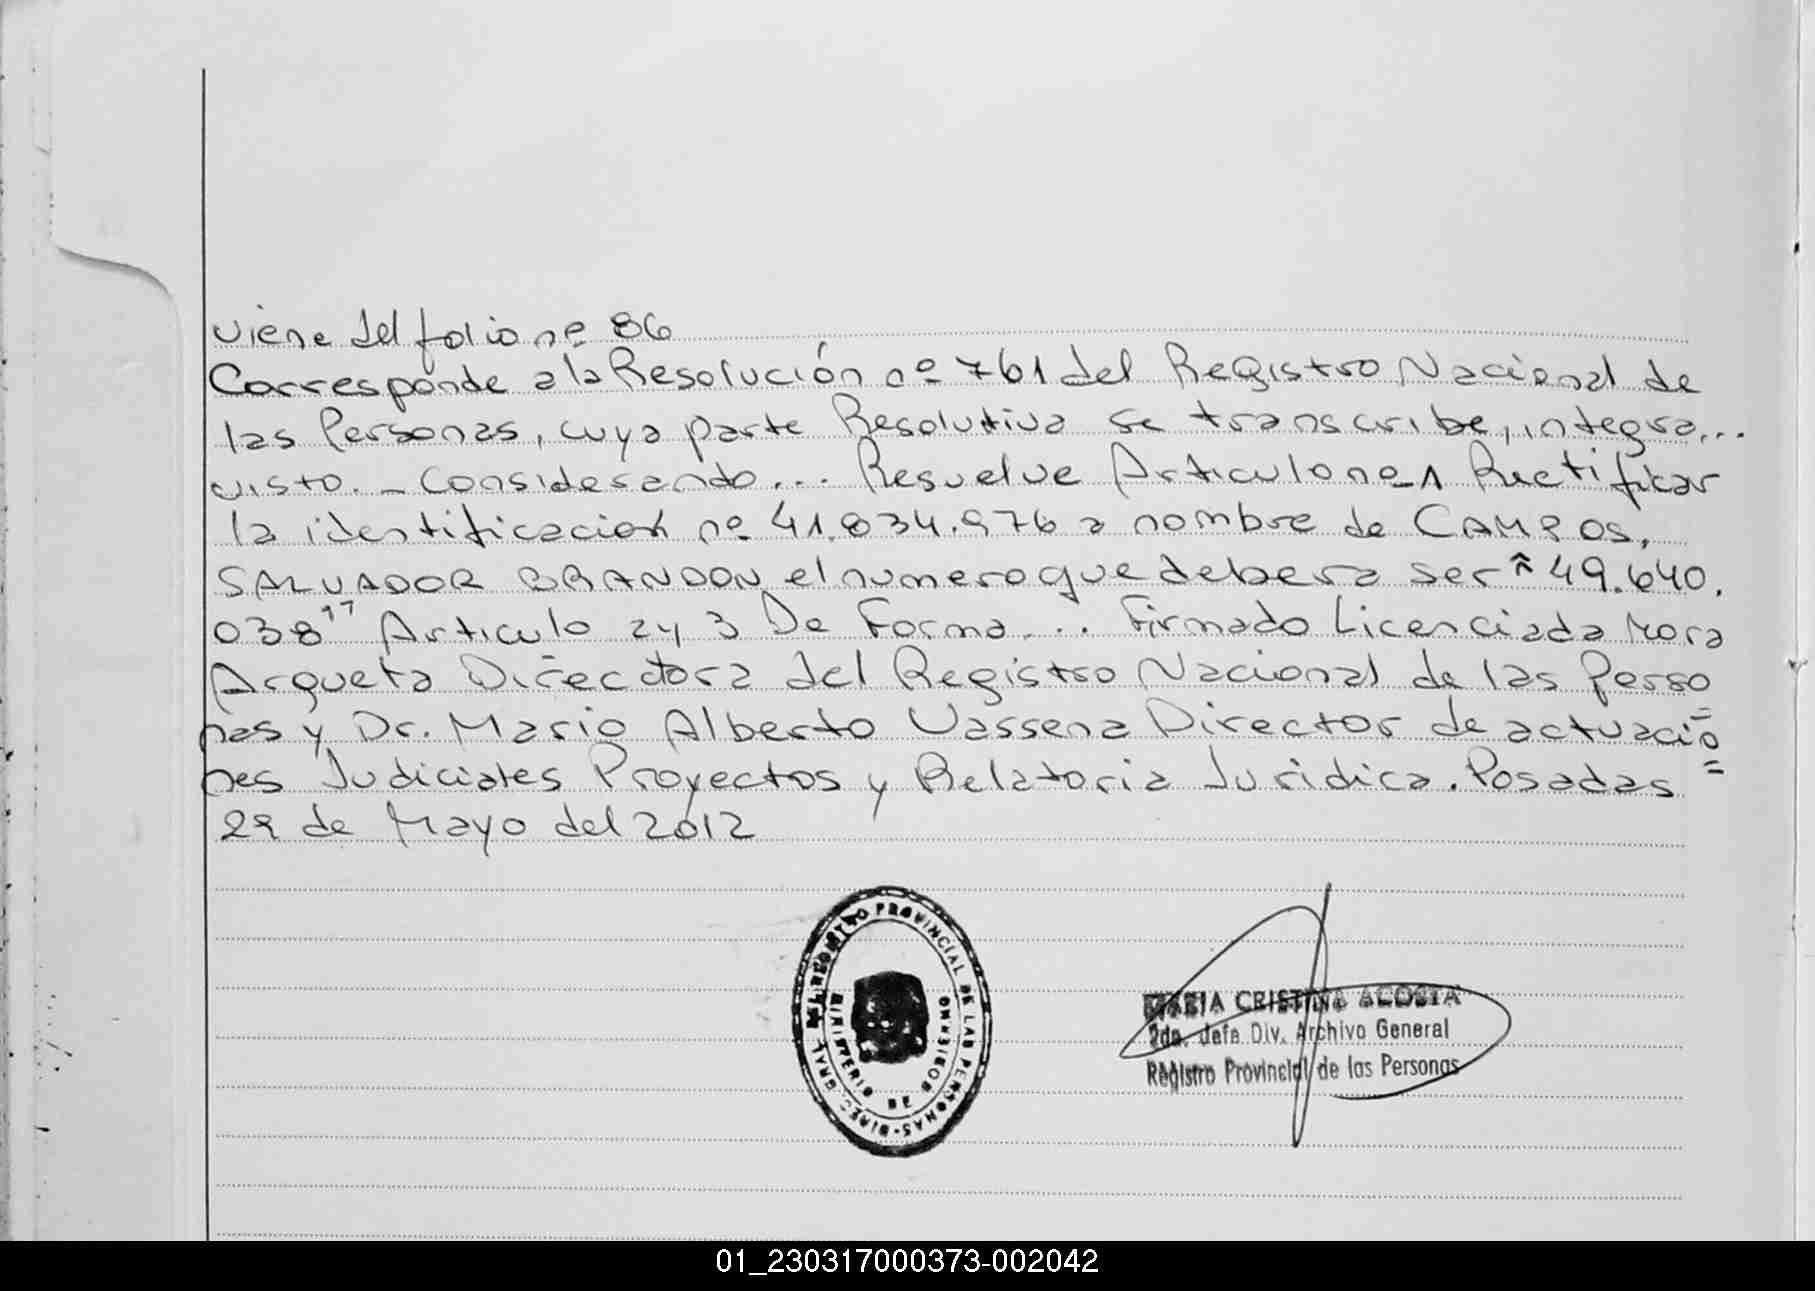 viene del folio nº 86
Corresponde a la Resolución nº 761 del Registro Nacional de
las Personas, cuya parte Resolutiva se transcribe, integra...
visto. - Considerando... Resuelve Articulo nº 1 Rectificar
la identificacion nº 41.834.976 a nombre de CAMPOS,
SALVADOR BRANDON el numero que debera ser "49.640.
038" Articulo 2 y 3 De Forma... Firmado Licenciada Mora
Arqueta Directora del Registro Nacional de las Perso
nas y Dr. Mario Alberto Vassena Director de actuacio=
nes Judiciales Proyectos y Relatoria Juridica. Posadas=
29 de Mayo del 2012
DIREC. GRAL. DEL REGISTRO PROVINCIAL DE LAS PERSONAS
MINISTERIO DE GOBIERNO
MARIA CRISTINA ACOSTA
2da. Jefa Div. Archivo General
Registro Provincial de las Personas
01_230317000373-002042